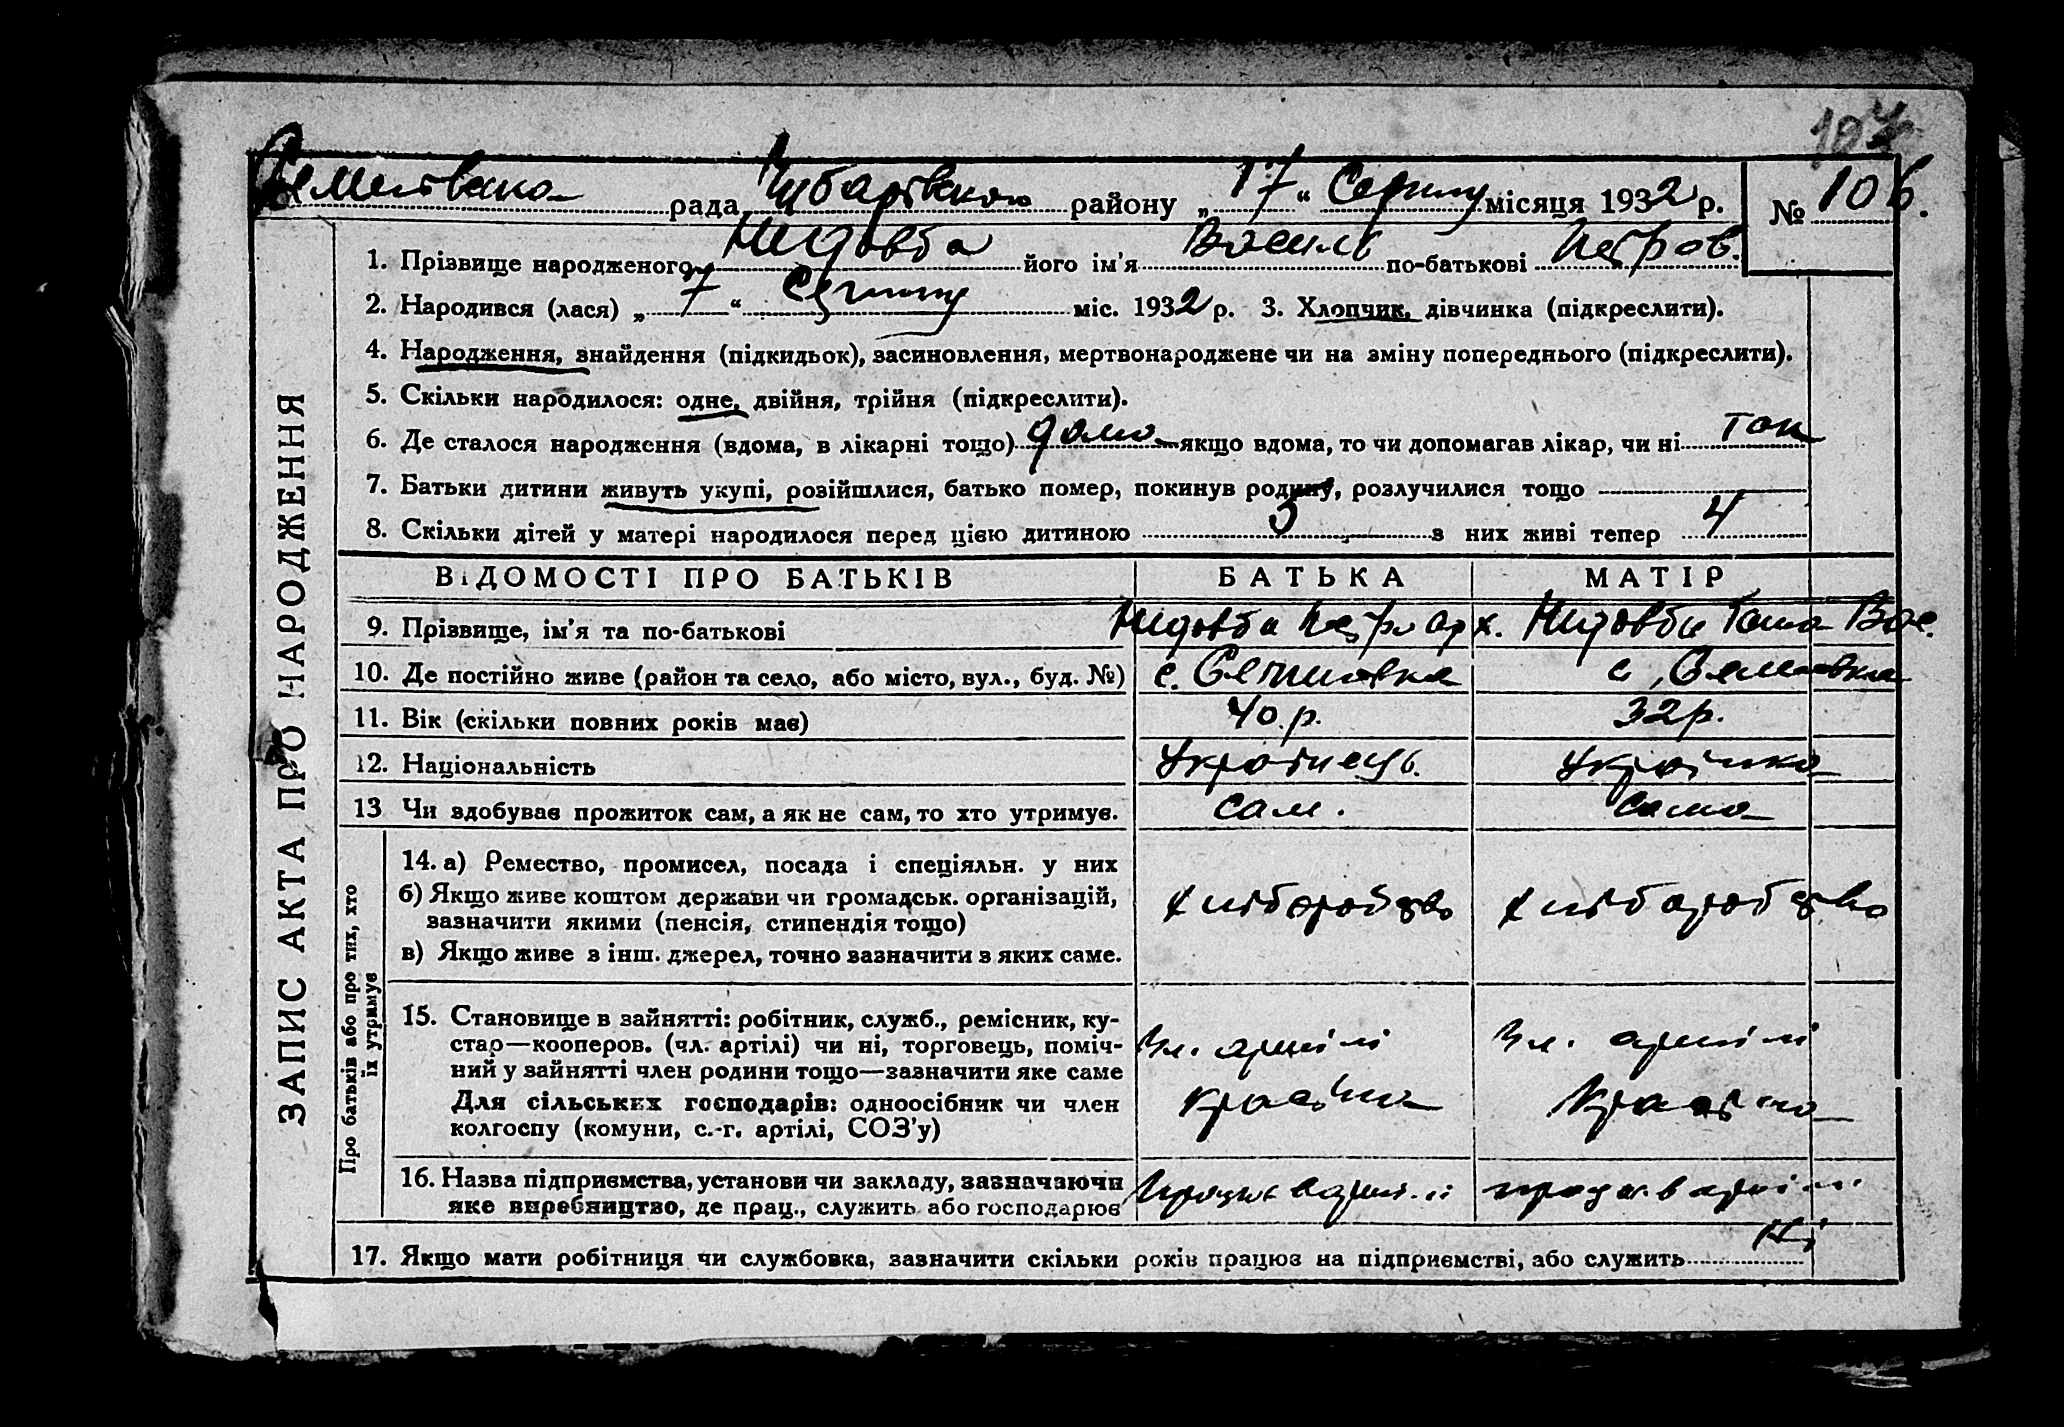 107
Семенівська рада Чубарівського району „17“ Серпня місяця 1932 р. № 106.
1. Прізвище народженого Недовба його ім'я Василь по-батькові Петров.
2. Народився (лася) „7“ Серпня міс. 1932 р. 3. Хлопчик, дівчинка (підкреслити).
4. Народження, знайдення (підкидьок), засиновлення, мертвонароджене чи на зміну попереднього (підкреслити).
5. Скільки народилося: одне, двійня, трійня (підкреслити).
6. Де сталося народження (вдома, в лікарні тощо) дома якщо вдома, то чи допомагав лікар, чи ні так
7. Батьки дитини живуть укупі, розійшлися, батько помер, покинув родину, розлучилися тощо
8. Скільки дітей у матері народилося перед цією дитиною 5 з них живі тепер 4
ВІДОМОСТІ ПРО БАТЬКІВ БАТЬКА МАТІР
9. Прізвище, ім'я та по-батькові Недовба Петро Недовба Вас.
10. Де постійно живе (район та село, або місто, вул., буд. №) с. Семенівка с. Семенівка
11. Вік (скільки повних років має) 40 р. 32 р.
12. Національність Українець. Українка
13 Чи здобуває прожиток сам, а як не сам, то хто утримує. сам. сама
14. а) Ремество, промисел, посада і спеціяльн. у них
б) Якщо живе коштом держави чи громадськ. організацій,
зазначити якими (пенсія, стипендія тощо) хліборобство хліборобство
в) Якщо живе з інш. джерел, точно зазначити з яких саме.
15. Становище в зайнятті: робітник, служб., ремісник, ку-
стар—кооперов. (чл. артілі) чи ні, торговець, поміч- Чл. артілі Чл. артілі
ний у зайнятті член родини тощо—зазначити яке саме
Для сільських господарів: одноосібник чи член
колгоспу (комуни, с.-г. артілі, СОЗ'у)
16. Назва підприємства, установи чи закладу, зазначаючи
яке виробництво, де прац., служить або господарює працює в артілі працює в артілі
17. Якщо мати робітниця чи службовка, зазначити скільки років працює на підприємстві, або служить ні
ЗАПИС АКТА ПРО НАРОДЖЕННЯ
Про батьків або про тих, хто
їх утримує